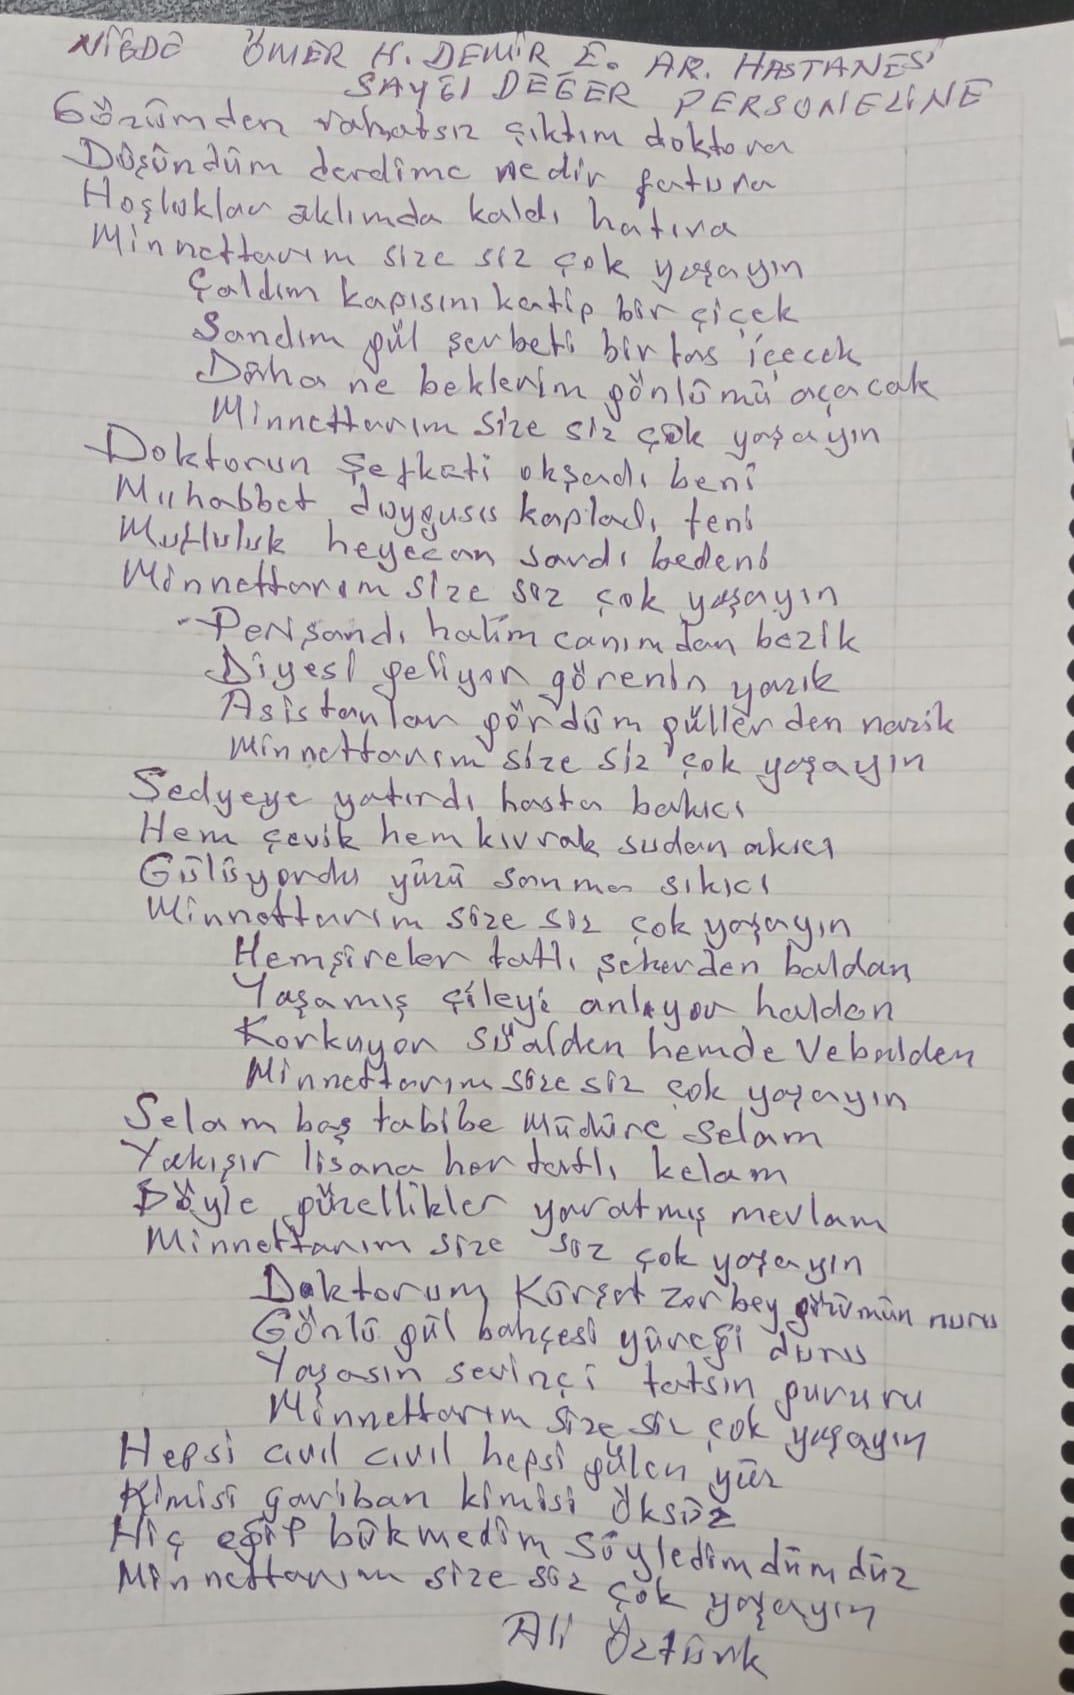 NİĞDE ÖMER H. DEMİR E. AR. HASTANESİ
SAYĞI DEĞER PERSONELİNE
Gözümden rahatsız çıktım doktora
Düşündüm derdime nedir fatura
Hoşluklar aklımda kaldı hatıra
Minnettarım size siz çok yaşayın
Çaldım kapısını katip bir çiçek
Sandım gül şerbeti bir tas içecek
Daha ne beklerim gönlümü açacak
Minnettarım size siz çok yaşayın
Doktorun şefkati okşadı beni
Muhabbet duygusu kapladı teni
Mutluluk heyecan sardı bedeni
Minnettarım size siz çok yaşayın
Perişandı halim canımdan bezik
Diyesi geliyor görenin yazık
Asistanlar gördüm güllerden nazik
Minnettarım size siz çok yaşayın
Sedyeye yatırdı hasta bakıcı
Hem çevik hem kıvrak sudan akıcı
Gülüyordu yüzü sanma sıkıcı
Minnettarım size siz çok yaşayın
Hemşireler tatlı şekerden baldan
Yaşamış çileyi anlıyor haldan
Korkuyor süalden hemde vebalden
Minnettarım size siz çok yaşayın
Selam baş tabibe müdüre selam
Yakışır lisana her tatlı kelam
Böyle güzellikler yaratmış mevlam
Minnettarım size siz çok yaşayın
Doktorum Kürşat zor bey gözümün nuru
Gönlü gül bahçesi yüreği duru
Yaşasın sevinçi tatsın gururu
Minnettarım size siz çok yaşayın
Hepsi cıvıl cıvıl hepsi gülen yüz
Kimisi gariban kimisi öksüz
Hiç eğip bükmedim söyledim dümdüz
Minnettarım size siz çok yaşayın
Ali Öztürk